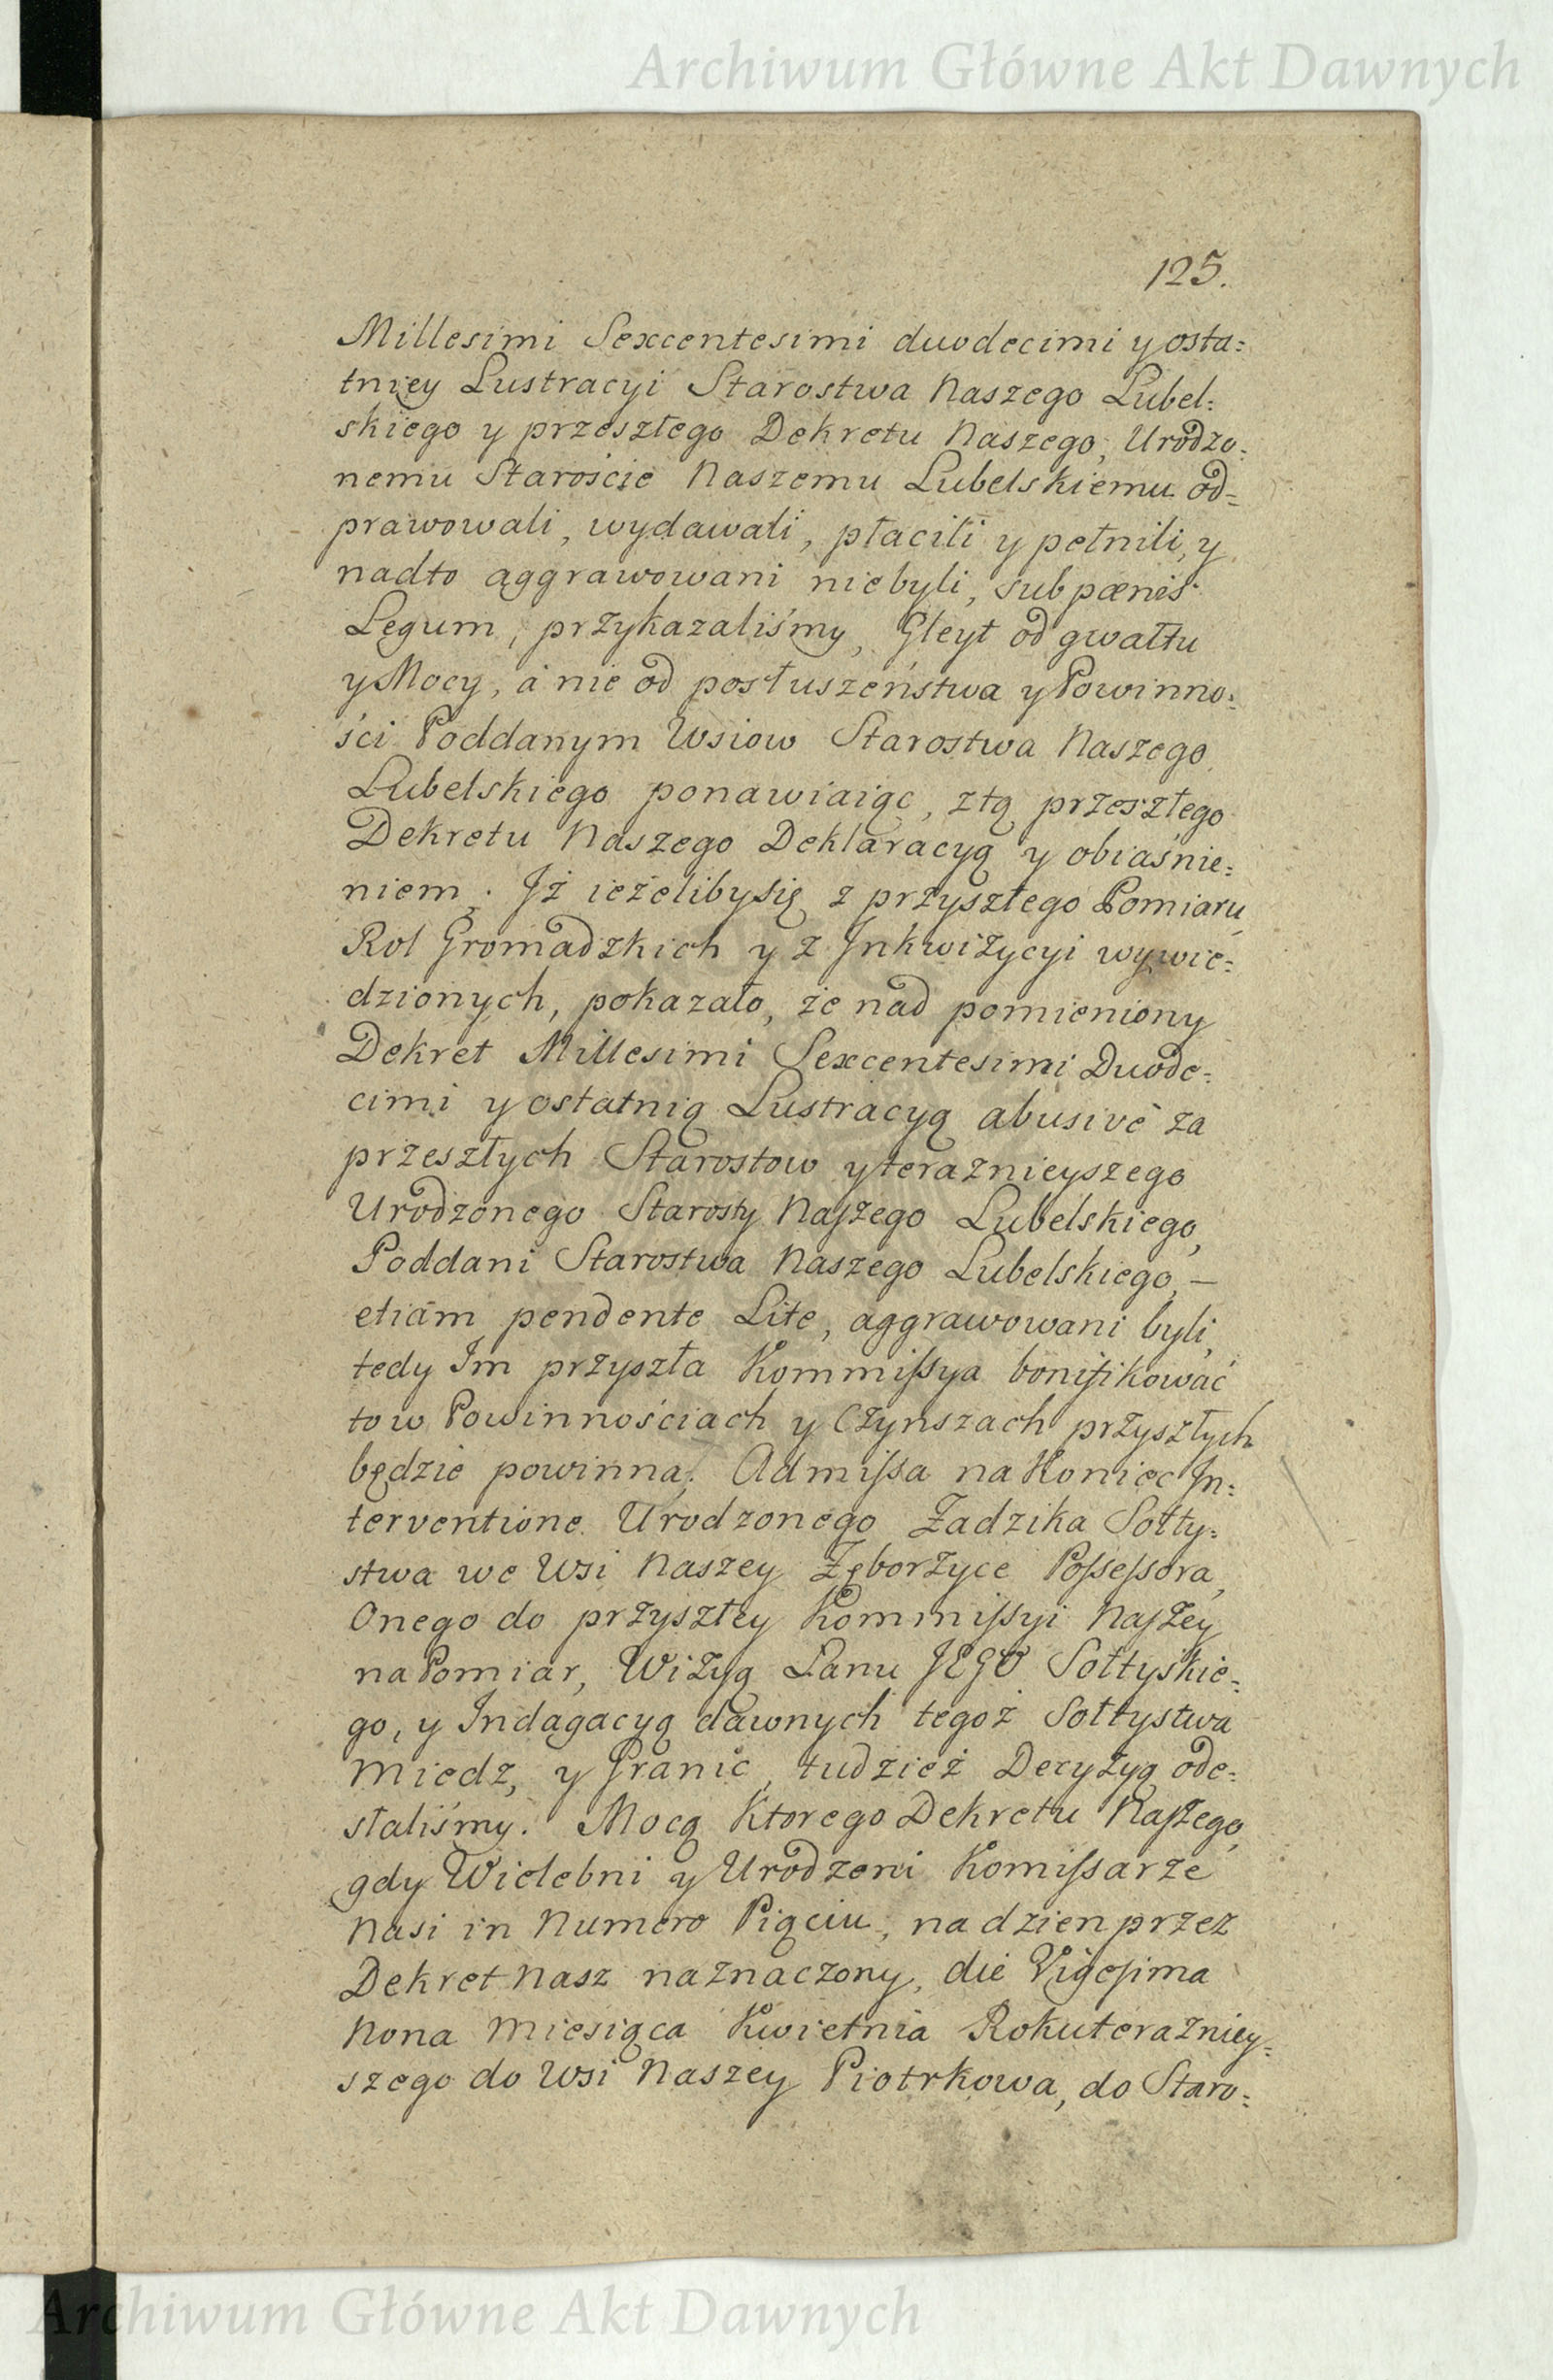 Archiwum Główne Akt Dawnych
125.
Millesimi Sexcentesimi duodecimi y osta=
tniey Lustracyi Starostwa Naszego Lubel=
skiego y przeszłego Dekretu Naszego, Urodzo=
nemu Staroście Naszemu Lubelskiemu od=
prawowali, wydawali, płacili y pełnili, y
nadto aggrawowani niebyli, sub pœnis
Legum, przykazaliśmy, Gleyt od gwałtu
y Mocy, á nie od posłuszeństwa y Powinno=
ści Poddanym Wsiow Starostwa Naszego
Lubelskiego ponawiaiąc, ztą przeszłego
Dekretu Naszego Deklaracyą y obiaśnie=
niem. Jż ieżelibysię z przyszłego Pomiaru
Rol Gromadzkich y z Jnkwizycyi wywie=
dzionych, pokazało, że nad pomieniony
Dekret Millesimi Sexcentesimi Duode=
cimi y ostatnią Lustracyą abusivè za
przeszłych Starostow y teraznieyszego
Urodzonego Starosty Naszego Lubelskiego,
Poddani Starostwa Naszego Lubelskiego, —
etiam pendente Lite, aggrawowani byli,
tedy Im przyszła Kommissya bonifikować
to w Powinnościach y Czynszach przyszłych
będzie powinna. Admissa na Koniec Jn=
terventione Urodzonego Żadzika Sołty=
stwa we Wsi Naszey Zęborzyce Possessora,
Onego do przyszłey Kommissyi Naszey
na Pomiar, Wizyą Łanu JEGO Sołtyskie=
go, y Indagacyą dawnych tegoż Sołtystwa
Miedz, y Granic, tudzież Decyzyą ode=
słaliśmy. Mocą Ktorego Dekretu Naszego,
gdy Wielebni y Urodzeni Komissarze
Nasi in Numero Piąciu, na dzien przez
Dekret Nasz naznaczony, die Vigesima
Nona Miesiąca Kwietnia Roku terazniey=
szego do Wsi Naszey Piotrkowa, do Staro=
Archiwum Główne Akt Dawnych